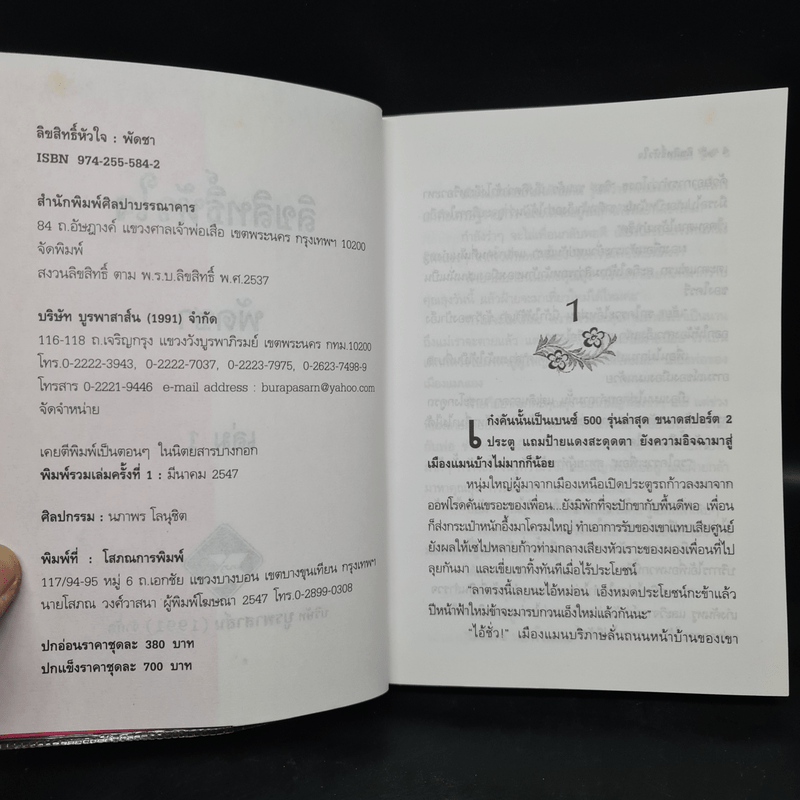 ลิขสิทธิ์หัวใจ : พัดชา
ISBN 974-255-584-2
สำนักพิมพ์ศิลปาบรรณาคาร
84 ถ.อัษฎางค์ แขวงศาลเจ้าพ่อเสือ เขตพระนคร กรุงเทพฯ 10200
จัดพิมพ์
สงวนลิขสิทธิ์ ตาม พ.ร.บ.ลิขสิทธิ์ พ.ศ.2537
บริษัท บูรพาสาส์น (1991) จำกัด
116-118 ถ.เจริญกรุง แขวงวังบูรพาภิรมย์ เขตพระนคร กทม.10200
โทร.0-2222-3943, 0-2222-7037, 0-2223-7975, 0-2623-7498-9
โทรสาร 0-2221-9446 e-mail address : burapasarn@yahoo.com
จัดจำหน่าย
เคยตีพิมพ์เป็นตอนๆ ในนิตยสารบางกอก
พิมพ์รวมเล่มครั้งที่ 1 : มีนาคม 2547
ศิลปกรรม : นภาพร โลนุชิต
พิมพ์ที่ : โสภณการพิมพ์
117/94-95 หมู่ 6 ถ.เอกชัย แขวงบางบอน เขตบางขุนเทียน กรุงเทพฯ
นายโสภณ วงศ์วาสนา ผู้พิมพ์โฆษณา 2547 โทร.0-2899-0308
ปกอ่อนราคาชุดละ 380 บาท
ปกแข็งราคาชุดละ 700 บาท
1
เก๋งคันนั้นเป็นเบนซ์ 500 รุ่นล่าสุด ขนาดสปอร์ต 2
ประตู แถมป้ายแดงสะดุดตา ยังความอิจฉามาสู่
เมืองแมนบ้างไม่มากก็น้อย
หนุ่มใหญ่ผู้มาจากเมืองเหนือเปิดประตูรถก้าวลงมาจาก
ออฟโรดคันเขรอะของเพื่อน...ยังมิพักที่จะปักขากับพื้นดีพอ เพื่อน
ก็ส่งกระเป๋าหนักอึ้งมาโครมใหญ่ ทำเอาการรับของเขาแทบเสียศูนย์
ยังผลให้เซไปหลายก้าวท่ามกลางเสียงหัวเราะของผองเพื่อนที่ไป
ลุยกันมา และเขี่ยเขาทิ้งทันทีเมื่อไร้ประโยชน์
“ลาตรงนี้เลยนะไอ้หม่อน เอ็งหมดประโยชน์กะข้าแล้ว
ปีหน้าฟ้าใหม่ข้าจะมารบกวนเอ็งใหม่แล้วกันนะ”
“ไอ้ชั่ว!” เมืองแมนบริภาษลั่นถนนหน้าบ้านของเขา